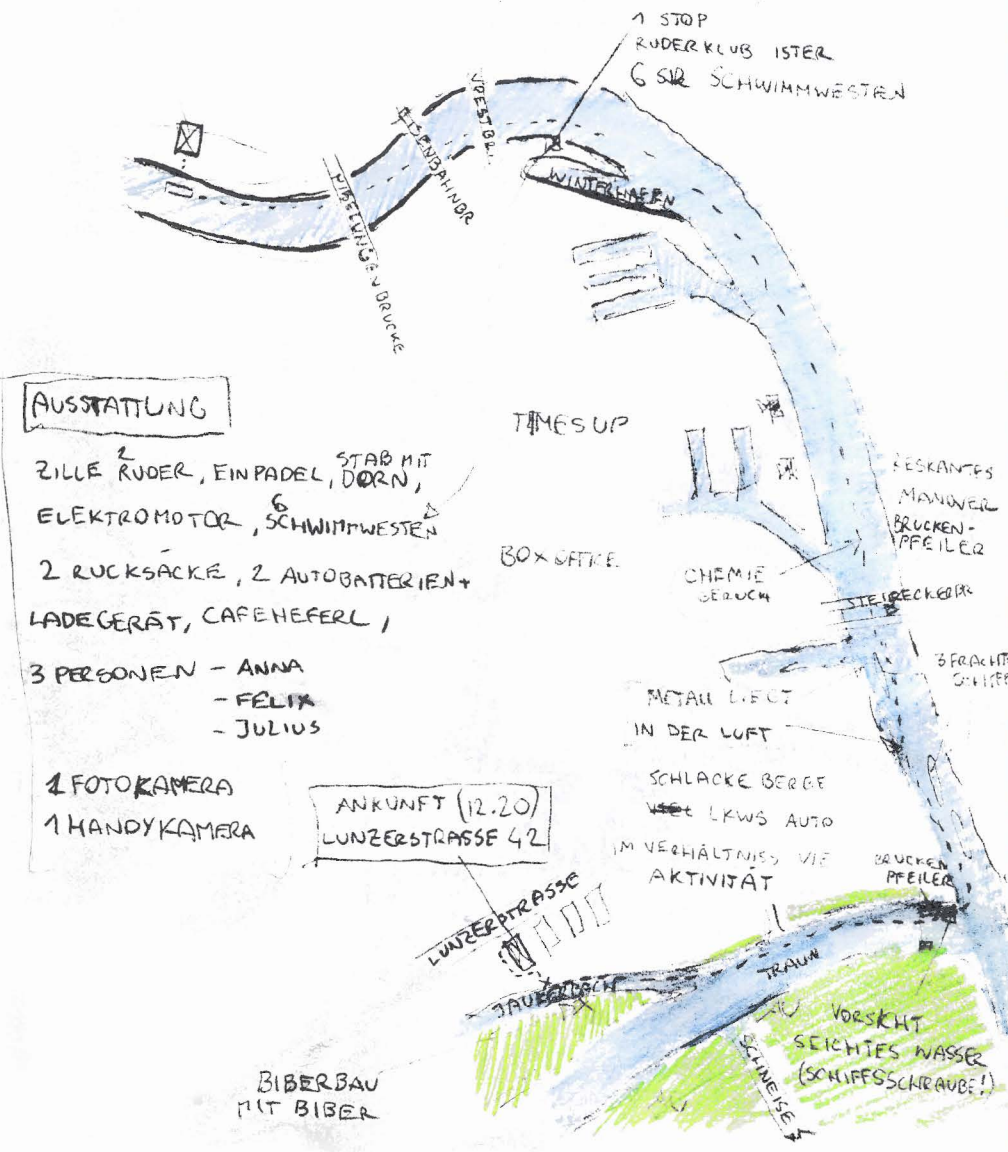 1 STOP
RUDERKLUB ISTER
6 SCHWIMMWESTEN
VOESTBR.
EISENBAHNBR
NIBELUNGENBRÜCKE
WINTERHAFEN
AUSSTATTUNG
ZILLE 2 RUDER, EINPADEL, STAB MIT DORN,
ELEKTROMOTOR, 6 SCHWIMMWESTEN
2 RUCKSÄCKE, 2 AUTOBATTERIEN +
LADEGERÄT, CAFEHEFERL,
3 PERSONEN - ANNA
- FELIX
- JULIUS
1 FOTOKAMERA
1 HANDYKAMERA
TIMES UP
BOX OFFICE
RESKANTES
MANÖVER
BRÜCKEN-
PFEILER
CHEMIE
GERUCH
STEIRECKERBR
3 FRACHT
SCHIFF
METALL LIEGT
IN DER LUFT
SCHLACKE BERGE
LKWS AUTO
IM VERHÄLTNISS VIE
AKTIVITÄT
BRÜCKEN
PFEILER
ANKUNFT (12.20)
LUNZERSTRASSE 42
LUNZERSTRASSE
JAUKERBACH
TRAUN
AU
VORSICHT
SEICHTES WASSER
(SCHIFFSSCHRAUBE!)
SCHNEISE
AU
BIBERBAU
MIT BIBER